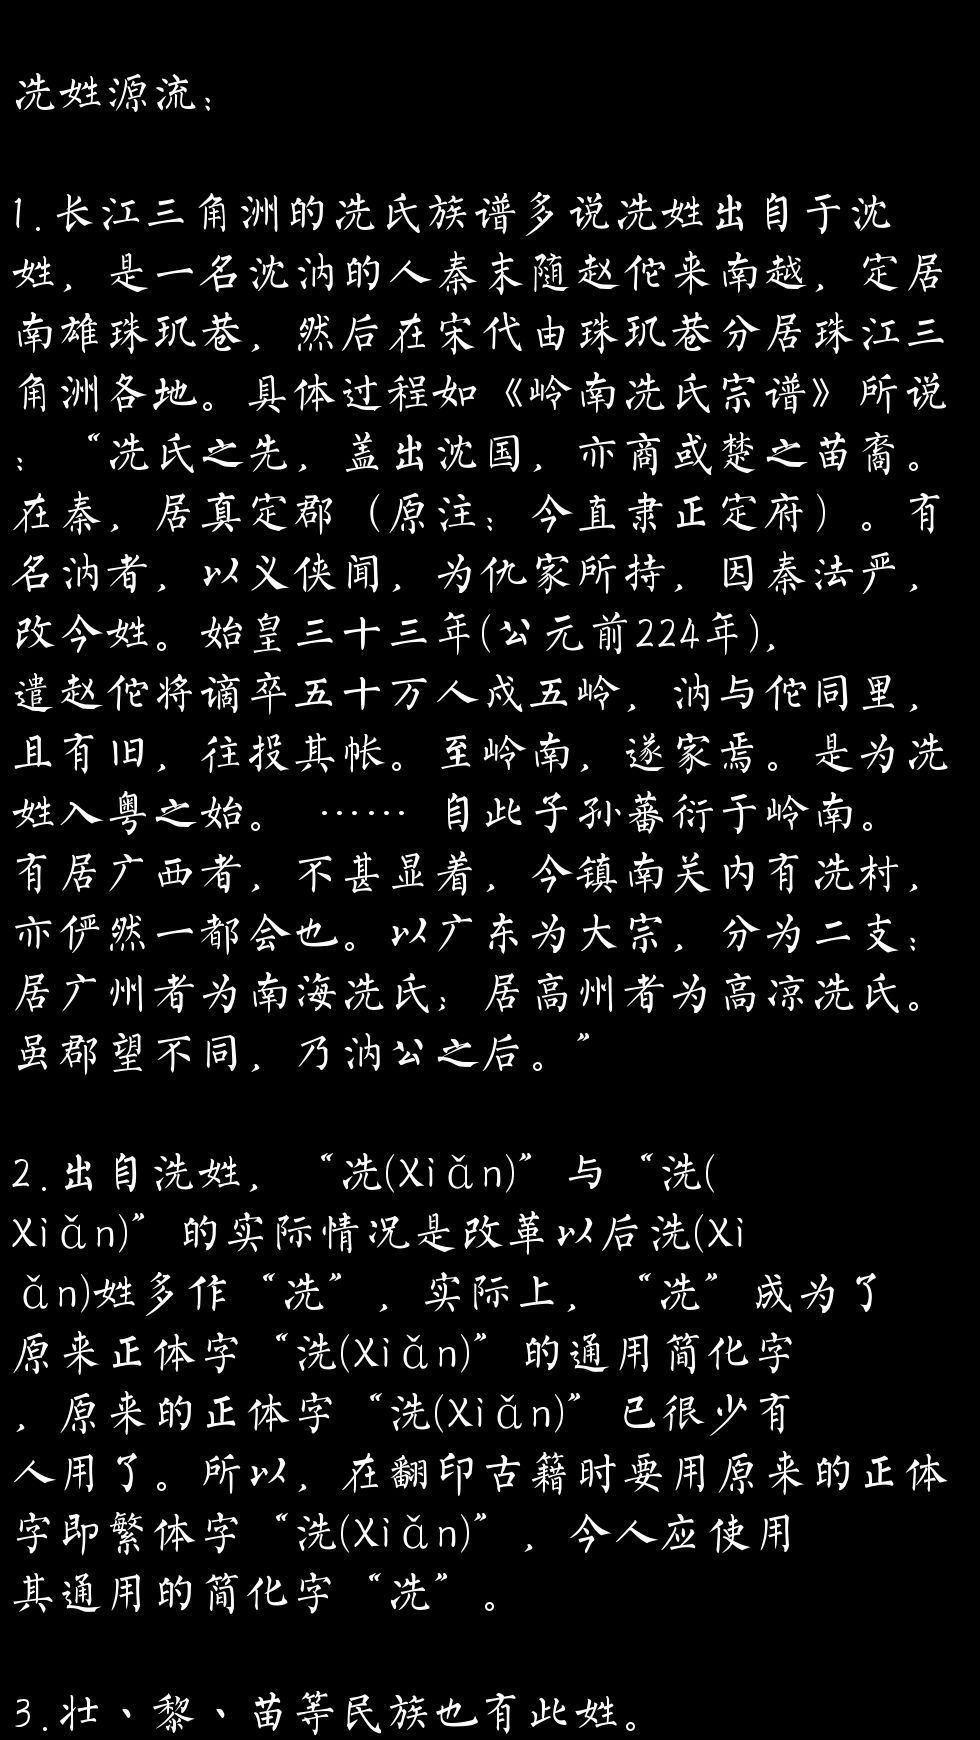 冼姓源流：
1.长江三角洲的冼氏族谱多说冼姓出自于沈
姓，是一名沈汭的人秦末随赵佗来南越，定居
南雄珠玑巷，然后在宋代由珠玑巷分居珠江三
角洲各地。具体过程如《岭南冼氏宗谱》所说
：“冼氏之先，盖出沈国，亦商或楚之苗裔。
在秦，居真定郡（原注：今直隶正定府）。有
名汭者，以义侠闻，为仇家所持，因秦法严，
改今姓。始皇三十三年(公元前224年)，
遣赵佗将谪卒五十万人戍五岭，汭与佗同里，
且有旧，往投其帐。至岭南，遂家焉。是为冼
姓入粤之始。 …… 自此子孙蕃衍于岭南。
有居广西者，不甚显着，今镇南关内有冼村，
亦俨然一都会也。以广东为大宗，分为二支：
居广州者为南海冼氏；居高州者为高凉冼氏。
虽郡望不同，乃汭公之后。”
2.出自洗姓，“冼(Xiǎn)”与“洗(
Xiǎn)”的实际情况是改革以后洗(Xi
ǎn)姓多作“冼”，实际上，“冼”成为了
原来正体字“洗(Xiǎn)”的通用简化字
，原来的正体字“洗(Xiǎn)”已很少有
人用了。所以，在翻印古籍时要用原来的正体
字即繁体字“洗(Xiǎn)”，今人应使用
其通用的简化字“冼”。
3.壮、黎、苗等民族也有此姓。